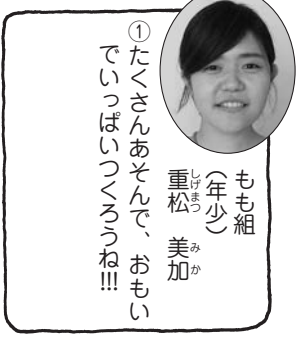 もも組
（年少）
重松　美加
しげまつ　みか
①たくさんあそんで、おもい
でいっぱいつくろうね!!!